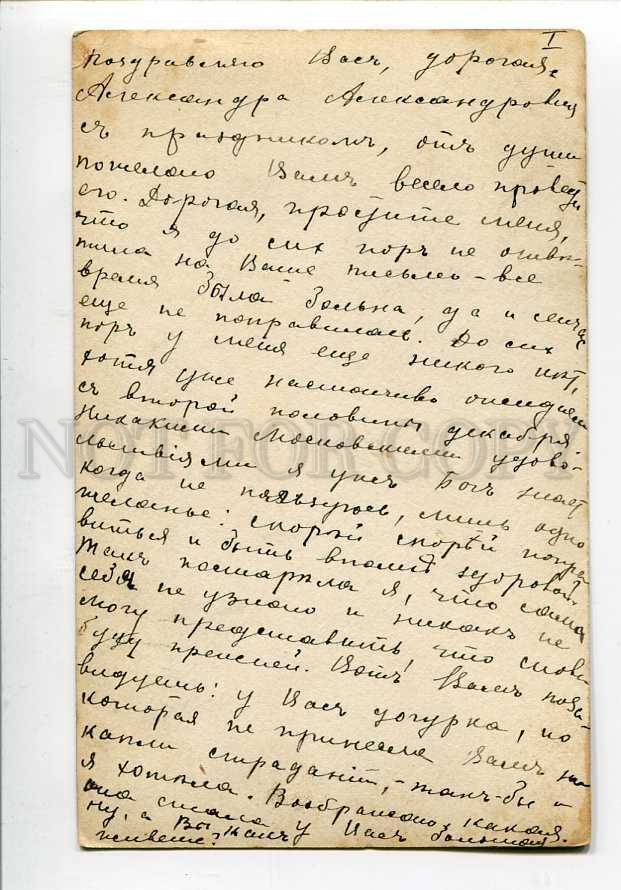 I
Поздравляю Васъ, дорогая,
Александра Александровна
съ праздникомъ, отъ души
пожелаю Вамъ весело провести
его. Дорогая, простите меня,
что я до сих поръ не отвѣ-
тила на Ваше письмо - все
время была больна, да и сейчас
еще не поправилась. До сих
поръ у меня еще никого нѣт,
хотя уже настойчиво ожидаем
съ второй половины декабря.
Никакими Московскими удово-
льствіями я ужъ Богъ знает
когда не пользуюсь, лишь одно
желанье: скорѣй скорѣй попра-
виться и быть вполнѣ здоровой.
Такъ постарѣла я, что сама
себя не узнаю и никакъ не
могу представить, что снова
буду прежней. Вотъ Вамъ поза-
видуешь: у Васъ дочурка, но
которая не принесла Вамъ ни
капли страданій, - такъ-бы и
я хотѣла. Воображаю, какая
она стала у Васъ большая.
ну, а Вы какъ
живете?
NOT FOR COPY